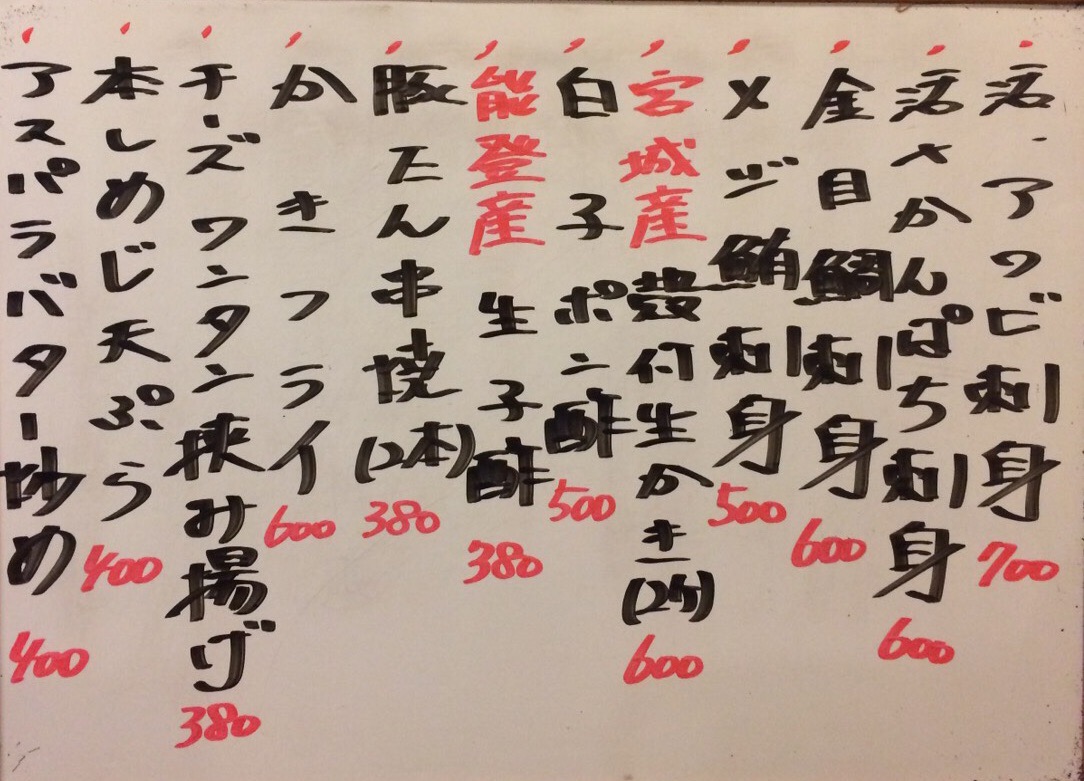 活・アワビ刺身 700
活〆かんぱち刺身 600
金目鯛刺身 600
メジ鮪刺身 500
宮城産 殻付生かき(2ケ) 600
白子ポン酢 500
能登産 生子酢 380
豚たん串焼(2本) 380
かきフライ 600
チーズワンタン挟み揚げ 380
本しめじ天ぷら 400
アスパラバター炒め 400